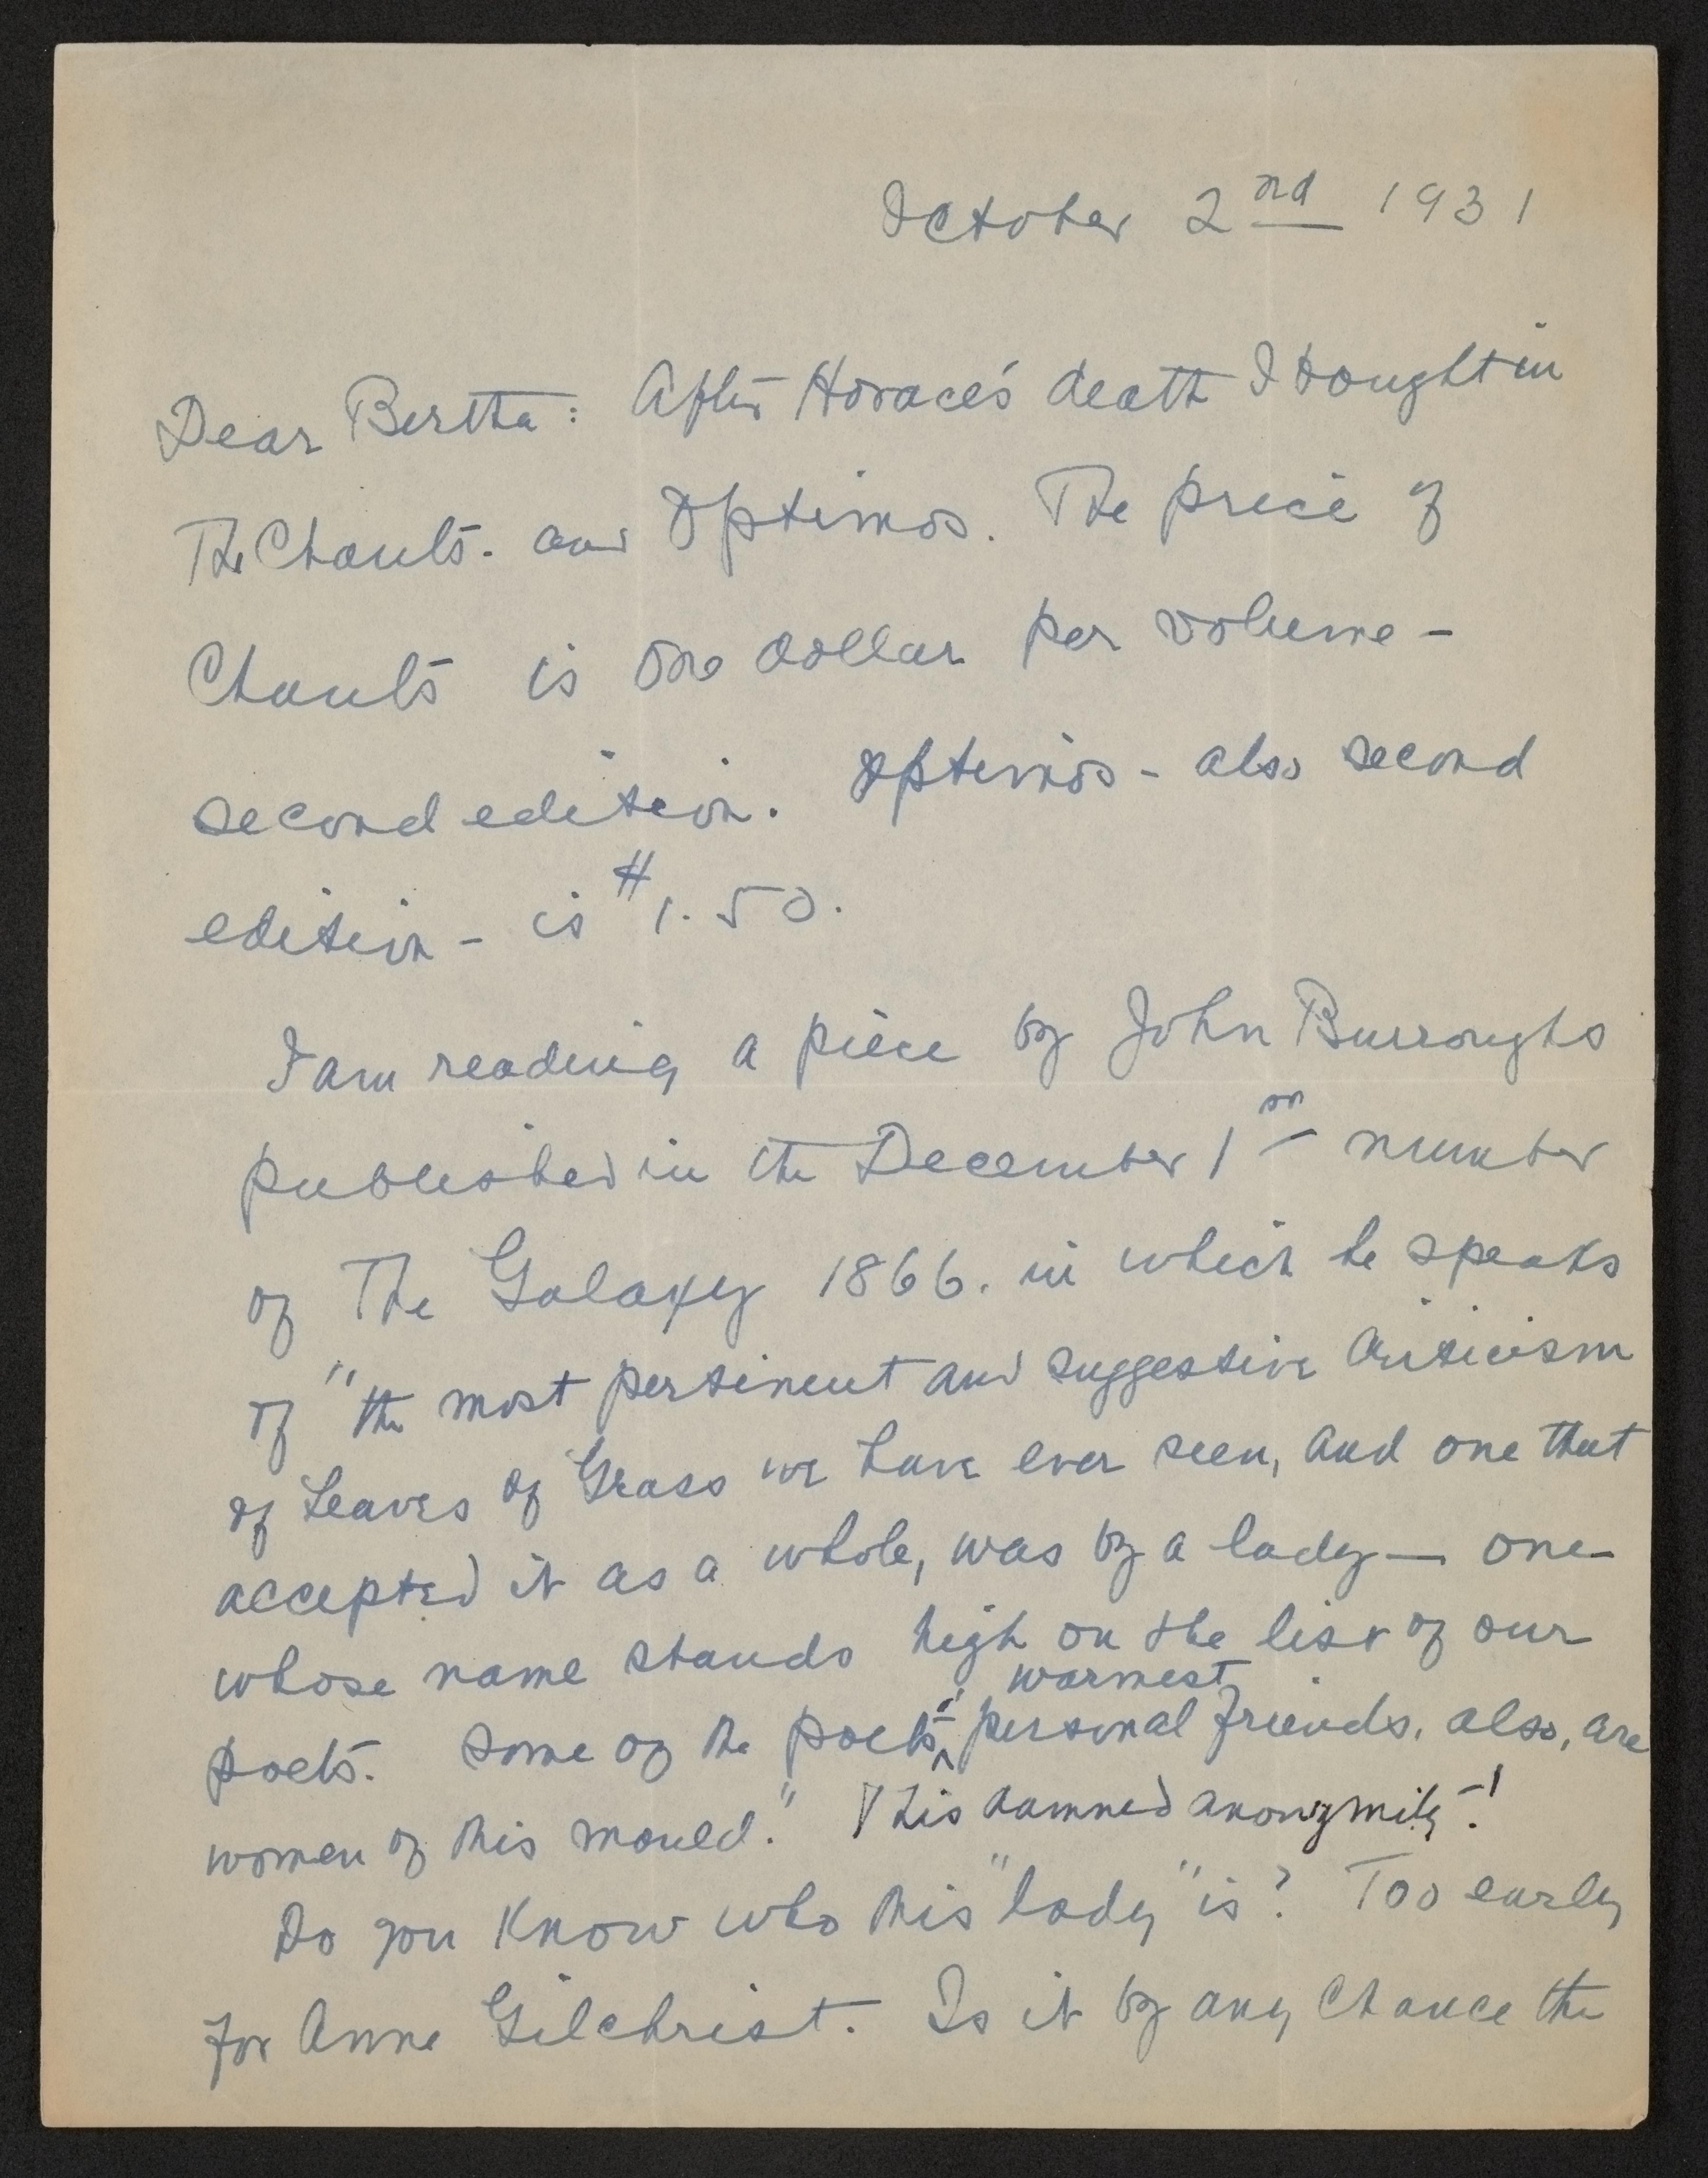 October 2nd 1931
Dear Bertha: After Horace's death I bought in
The Chants. and Optimos. The price of
Chants is one dollar per volume -
second edition. Optimos - also second
edition - is $1.50.
I am reading a piece by John Burroughs
published in the December 1st number
of The Galaxy 1866. in which he speaks
of "the most pertinent and suggestive criticism
of Leaves of Grass we have ever seen, and one that
accepted it as a whole, was by a lady — one
whose name stands high on the list of our
poets. Some of the poet's warmest personal friends, also, are
women of this mould." This damned anonymity!
Do you know who this "lady" is? Too early
for Anne Gilchrist. Is it by any chance the